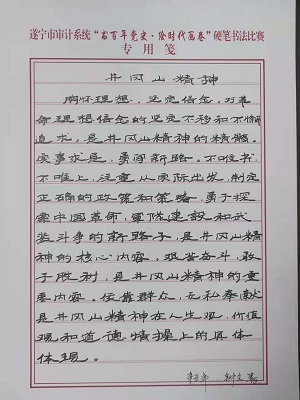 遂宁市审计系统“书百年党史·绘时代画卷”硬笔书法比赛
专用笺
井冈山精神
胸怀理想，坚定信念，对革
命理想信念的坚定不移和不懈
追求，是井冈山精神的精髓。
实事求是，勇闯新路，不唯书
不唯上，注重从实际出发，制定
正确的政策和策略，勇于探
索中国革命，军队建设和武
装斗争的新路子，是井冈山精
神的核心内容。艰苦奋斗，敢
于胜利，是井冈山精神的重
要内容。依靠群众，无私奉献
是井冈山精神在人生观，价值
观和道德情操上的具体
体现。